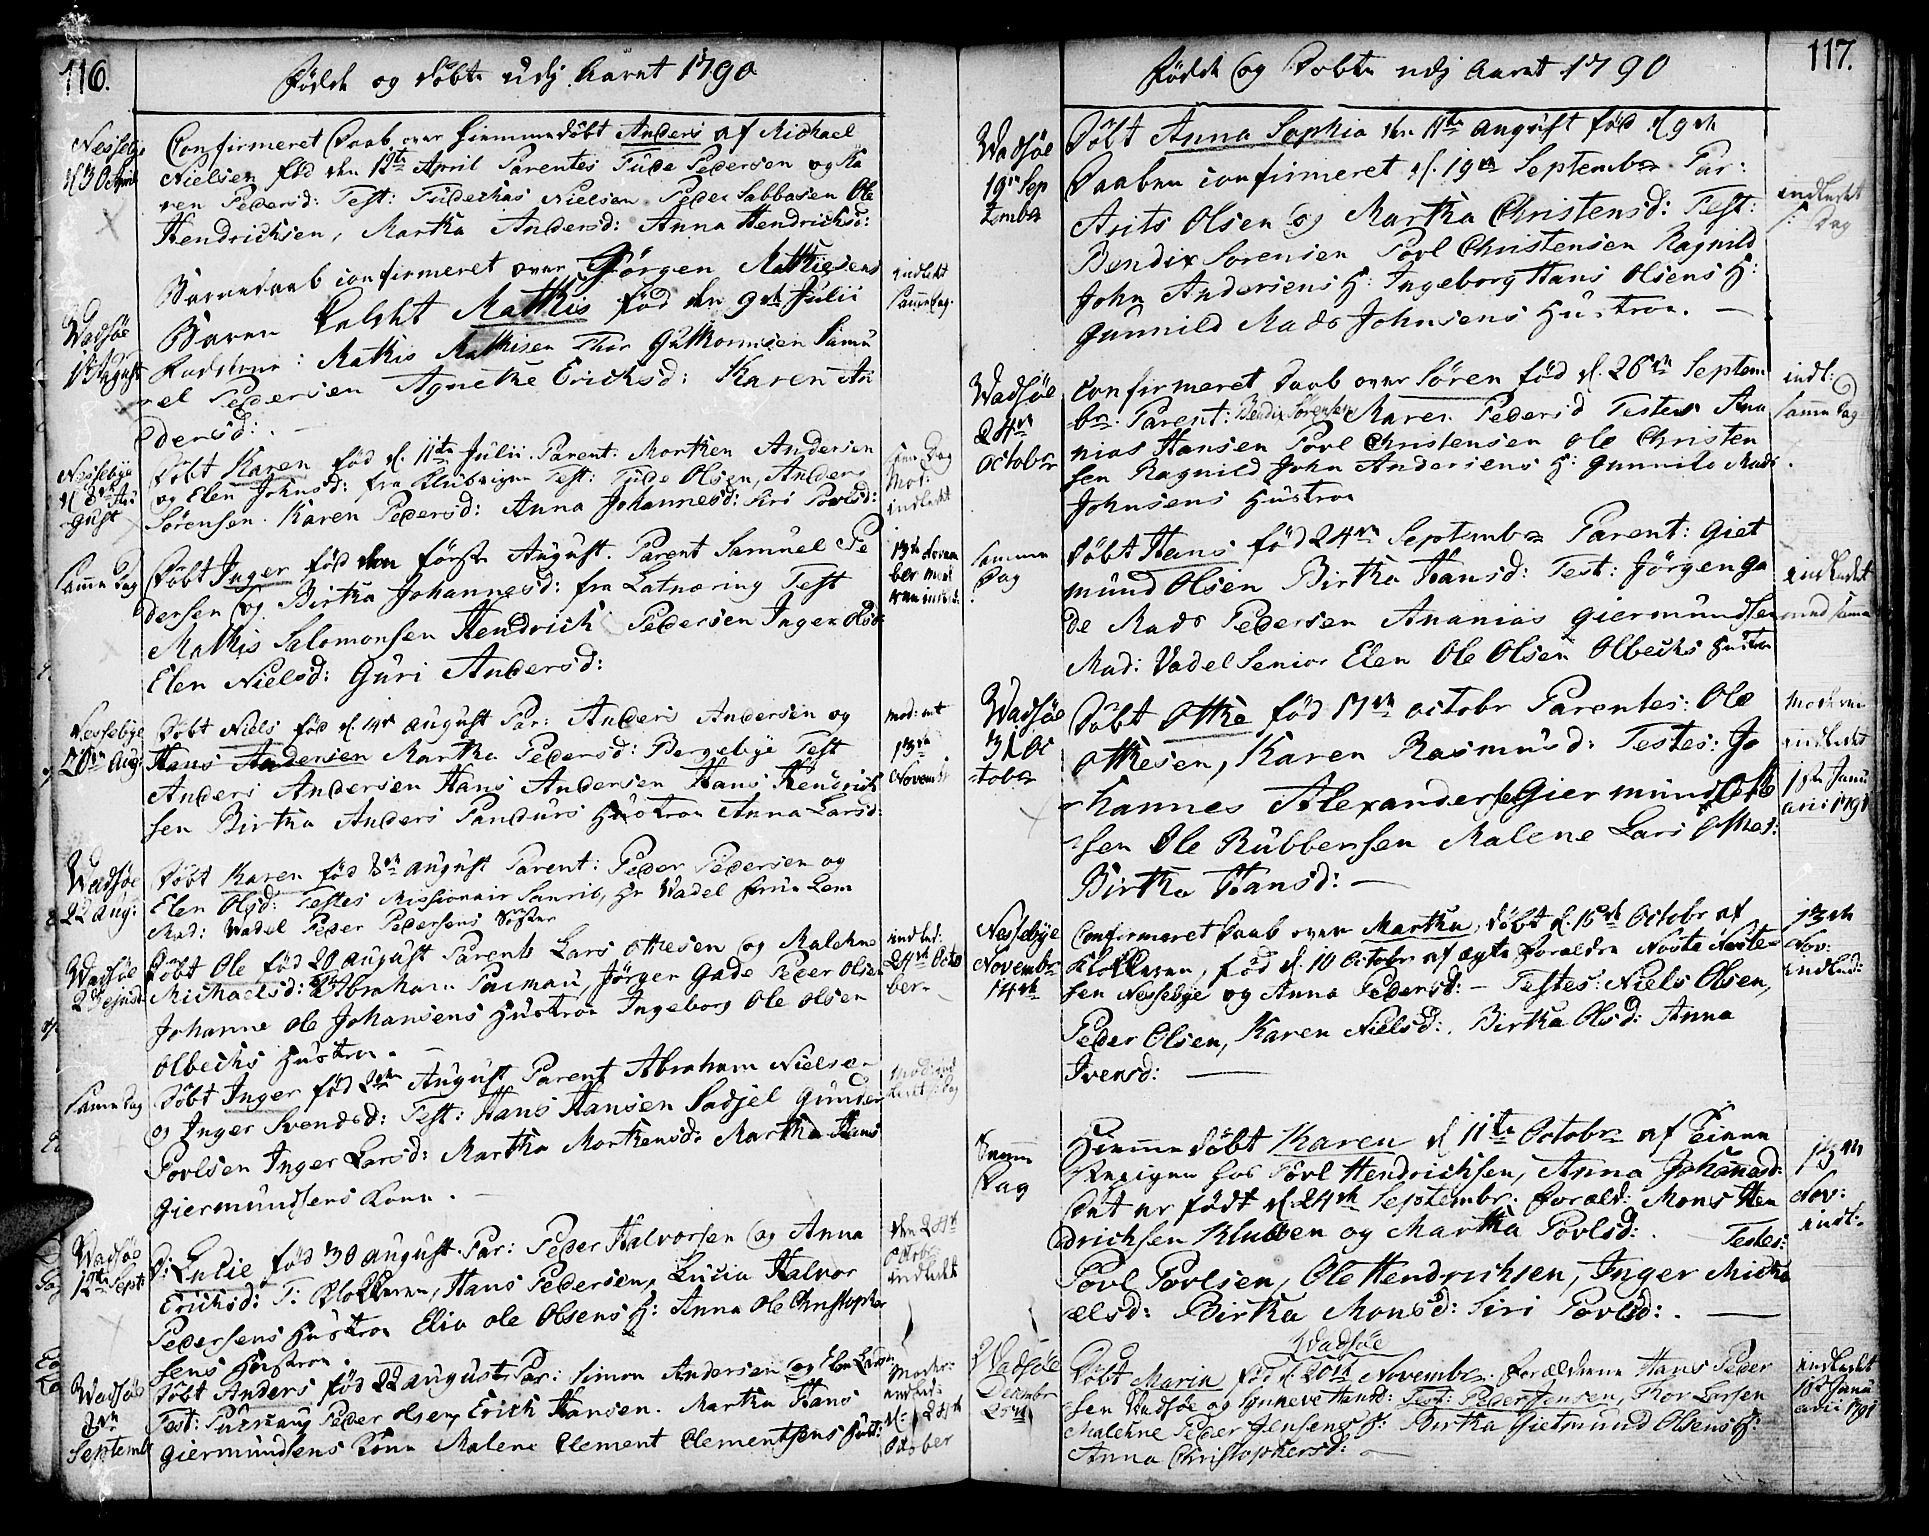 116.
Födde og döbte udj Aaret 1790
Nessebye
d 30 April
Confirmeret Daab over hiemmedöbt Anders af Michael
Nielsen fød den 12te April Parentes Tude Pedersen og Ka
ren Pedersd: Test: Nielsen Peder Sabbasen Ole
Hendrichsen, Martha Andersd: Anna Hendrichsd:
Wadsöe
1te August
Barnedaab confirmeret over Jörgen Mathiesens
Barn kaldet Mathis fød den 9de Julii
Fadderne: Mathis Mathisen Thor Guthormsen Samu
el Pedersen Agnethe Ericksd: Karen An
dersd:
indledt
samme Dag
Nessebye
d 8de Au
gust
Döbt Karen fød d. 11te Julii. Parent: Morthen Andersen
og Elen Johnsd: fra Klubvigen Test: Tude Olsen, Anders
Sörensen. Karen Pedersd: Anna Johannesd: Siri Povlsd:
samme Dag
Mod:
indledt
samme Dag
Döbt Inger fød den förste August. Parent Samuel Pe
dersen og Birtha Johannesd: fra Latnæring Test
Mathis Salomonsen Hendrich Pedersen Inger Olsd:
Elen Nielsd: Guri Andersd:
13de Novem
ber mod
eren indled:
Nessebye
20de Aug:
Döbt Niels fød d. 14de August Par: Anders Andersen og
Hans Andersen Martha Pedersd: Bergebye Test
Anders Andersen Hans Andersen Hans Hendrich
sen Birtha Anders Pandurs Hustroe Anna Larsd:
Mod: int
13de
Novembr
Wadsöe
22 Aug:
Döbt Karen fød 3de August Parent: Peder Pedersen og
Elen Olsd: Testes Missionair Hr Wadel Frue Lem
Mad: Wadel Peder Pedersens Söster
Wadsöe
Döbt Ole fød 20 August Parents Lars Othesen og Malehne
Michaelsd: Abraham Paimau, Jörgen Gade Peder Olsen
Johanne Ole Johansens Hustroe Ingeborg Ole Olsen
Olbechs Hustroe.
indled:
24de Octo
ber
samme Dag
Döbt Inger fød 2de August Parent Abraham Nielsen
og Inger Svendsd: Test: Hans Hansen Sadjel Gunder
Povlsen Inger Larsd: Martha Morthensd: Martha Hans
Giermundsens Kone.
Wadsöe
12te Sept:
D: Lucie fød 30 August. Par: Peder Halvorsen og Anna
Ericksd: T: Klokkeren, Hans Pedersen, Lucia Halvor
Pedersens Hustroe Elia Ole Olsens H: Anna Ole Christopher
sens Hustroe.
den 24de
Octobr
indledt
Wadsöe
Septembr
Döbt Anders fød 22 August Par: Simon Andersen og Elen Larsd:
Test: Paimau Peder Olsen, Erich Hansen. Martha Hans
Giermundsens Kone Malene Clement Clementsens Hust:
Moder:
indled:
d: 24de
October
117.
Födde og Döbte udj Aaret 1790
Wadsöe
19de Sep
tembr
Döbt Anna Sophia den 11te August fød d 9de
Daaben confirmeret d. 19de Septembr Par:
Arits Olsen og Martha Christensd: Test:
Bendix Sorensen Povl Christensen Ragnild
John Andersens H: Ingeborg Hans Olsens H:
Gunnild Mads Johnsens Hustroe.
indledet
s: Dag
Wadsöe
24de
Octobr
Confirmeret Daab over Sören fød d. 26de Septem
br. Parent: Bendix Sörensen Maren Pedersd Testes Ana
nias Hansen Povl Christensen Ole Christen
sen Ragnild John Andersens H: Gunnild Mads
Johnsens Hustroe
indl:
samme Dag
samme
Dag
Döbt Hans fød 24de Septembr Parent: Giet
mund Olsen Birtha Hansd: Test: Jörgen Ga
de Mads Pedersen Ananias Giermundsen
Mad: Vadel Senior Elen Ole Olsen Olbechs Hustroe
indledet
Wadsöe
31 Oc
tobr
Döbt Othe fød 17de Octobr Parentes: Ole
Othesen, Karen Rasmusd: Testes: Jo
hannes Alexandersen Giermund Othe
sen Ole Rubbensen Malene Lars Othes:
Birtha Hansd:
Moderen
indledet
1ste Janu
arii 1791
Nessebye
Novembr
14de
Confirmeret Daab over Martha, döbt d. 16de Octobr af
Klokkeren, fød d. 10 Octobr af ægte Forældre Noste Noste
sen Nessebye og Anna Pedersd: — Testes: Niels Olsen,
Peder Olsen, Karen Nielsd: Birtha Olsd: Anna
Ivensd:
13de
Nov:
indled:
Samme
Dag
Hiemmedöbt Karen d 11te Octobr af
hos Povl Hendrichsen, Anna Johannesd:
Det er født d. 24de Septembr: Foræld: Mons Hen
drichsen Klubben og Martha Povlsd: Testes:
Povl Povlsen, Ole Hendrichsen, Inger Micha
elsd: Birtha Monsd: Siri Povlsd:
13de
Nov:
indl:
Wadsöe
Wadsöe
Decembr
25de
Döbt Maria fød d. 20de Novembr. Forældrene Hans Peder
sen Wadsöe og Synneve Hansd: Test: Peder Jensen, Thor Larsen
Malehne Peder Jensens H: Birtha Gietmund Olsens H:
Anna Christophersd:
indledet
1ste Janu
arii 1791